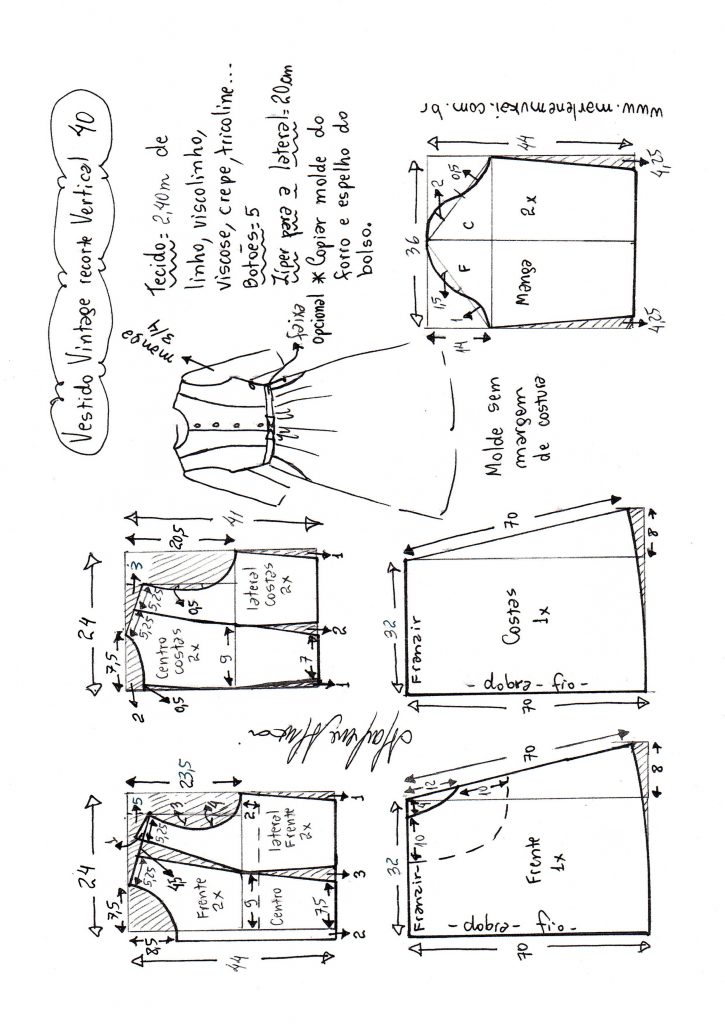 Vestido Vintage recorte Vertical 40
Tecido = 2,40m de
linho, viscolinho,
viscose, crepe, tricoline...
Botões = 5
Zíper para a lateral = 20cm
* Copiar molde do
forro e espelho do
bolso.
manga
3/4
faixa
opcional
www.marlenemukai.com.br
36
44
2
0,5
1,5
1
14
F
C
Manga
2x
4,25
4,25
Molde sem
margem
de costura
24
41
20,5
7,5
3
5,25
5,25
0,5
2
0,5
Centro
costas
2x
lateral
costas
2x
9
7
1
2
1
Marlene Mukai
24
23,5
7,5
5
1
3
4
5,25
5,25
4,5
8,5
2
Frente
2x
Centro
lateral
Frente
2x
9
7,5
44
2
3
1
32
70
Franzir
Costas
1x
- dobra - fio -
70
8
32
70
12
4
10
10
Franzir
Frente
1x
- dobra - fio -
70
8